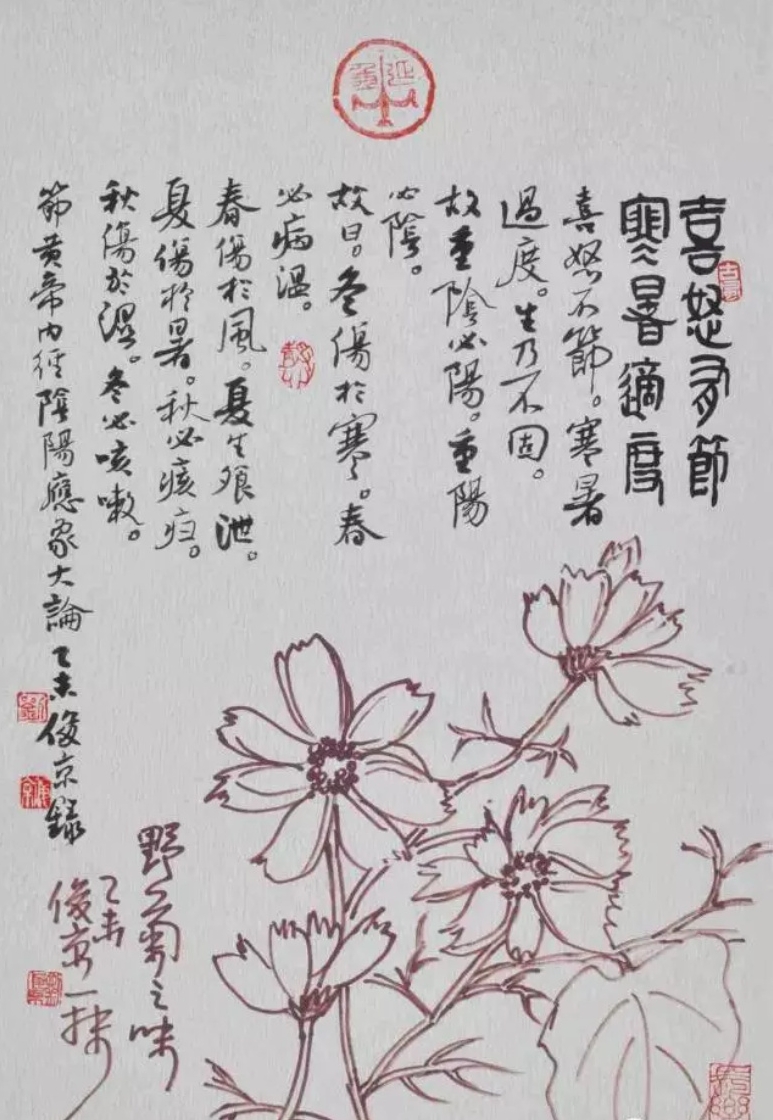 喜怒有節
寒暑適度
喜怒不節。寒暑
過度。生乃不固。
故重陰必陽。重陽
必陰。
故曰。冬傷於寒。春
必病溫。
春傷於風。夏生飱泄。
夏傷於暑。秋必痎疟。
秋傷於濕。冬必咳嗽。
節黄帝内經陰陽應象大論 乙未俊京錄
野菊之味
乙未
俊京一抹